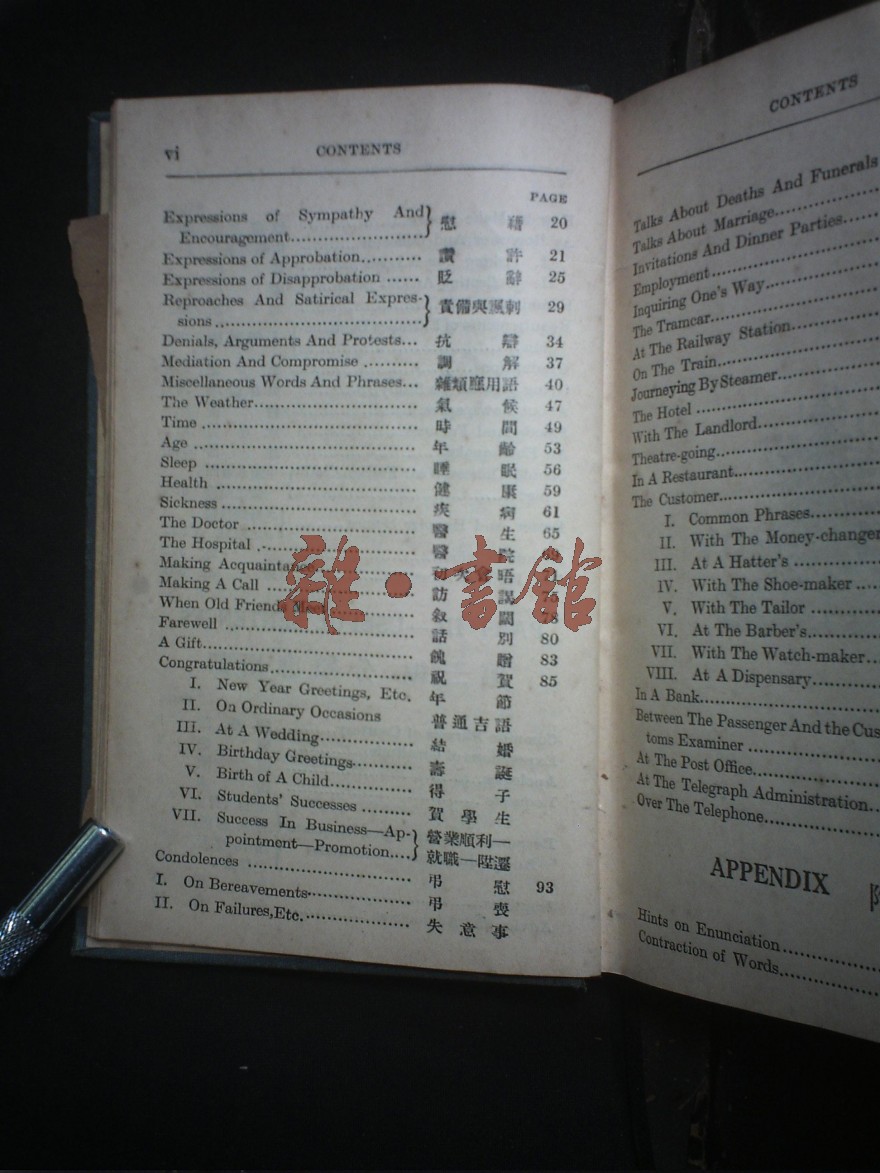 vi CONTENTS
PAGE
Expressions of Sympathy And
Encouragement } 慰藉 20
Expressions of Approbation 讚許 21
Expressions of Disapprobation 貶辭 25
Reproaches And Satirical Expres-
sions } 責備與諷刺 29
Denials, Arguments And Protests 抗辯 34
Mediation And Compromise 調解 37
Miscellaneous Words And Phrases 雜項應用語 40
The Weather 氣候 47
Time 時間 49
Age 年齡 53
Sleep 睡眠 56
Health 健康 59
Sickness 疾病 61
The Doctor 醫生 65
The Hospital 醫院
Making Acquaintance
Making A Call 訪
When Old Friends 敘闊 78
Farewell 話別 80
A Gift 餽贈 83
Congratulations 祝賀 85
I. New Year Greetings, Etc. 年節
II. On Ordinary Occasions 普通吉語
III. At A Wedding 結婚
IV. Birthday Greetings 壽誕
V. Birth of A Child 得子
VI. Students' Successes 賀學生
VII. Success In Business—Ap-
pointment—Promotion } 營業順利—
就職—陞遷
Condolences 弔慰 93
I. On Bereavements 弔喪
II. On Failures, Etc. 失意事
雜·書館
CONTENTS
Talks About Deaths And Funerals
Talks About Marriage
Invitations And Dinner Parties
Employment
Inquiring One's Way
The Tramcar
At The Railway Station
On The Train
Journeying By Steamer
The Hotel
With The Landlord
Theatre-going
In A Restaurant
The Customer
I. Common Phrases
II. With The Money-changer
III. At A Hatter's
IV. With The Shoe-maker
V. With The Tailor
VI. At The Barber's
VII. With The Watch-maker
VIII. At A Dispensary
In A Bank
Between The Passenger And the Cus
toms Examiner
At The Post Office
At The Telegraph Administration
Over The Telephone
APPENDIX
Hints on Enunciation
Contraction of Words